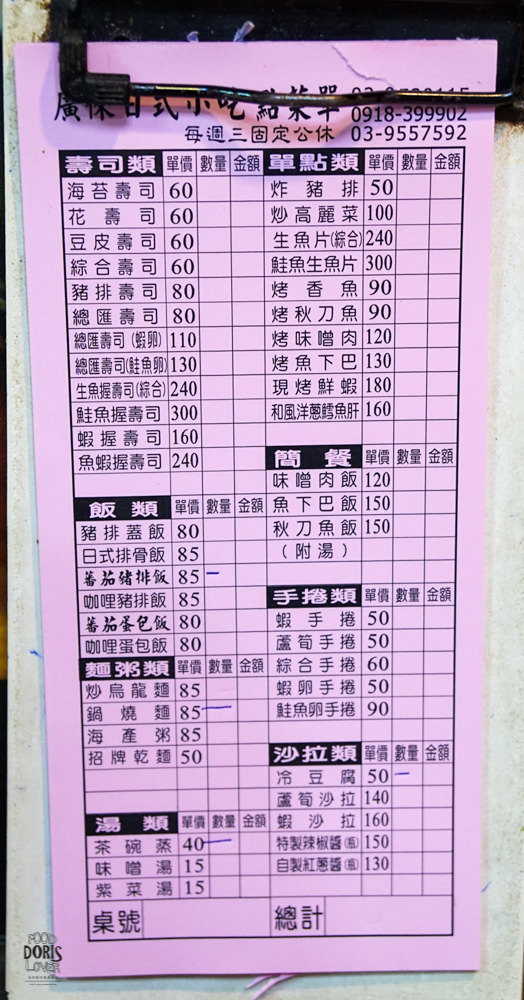 廣保日式小吃 點菜單
0918-399902
每週三固定公休 03-9557592
壽司類 單價 數量 金額
海苔壽司 60
花壽司 60
豆皮壽司 60
綜合壽司 60
豬排壽司 80
總匯壽司 80
總匯壽司(蝦卵) 110
總匯壽司(鮭魚卵) 130
生魚握壽司(綜合) 240
鮭魚握壽司 300
蝦握壽司 160
魚蝦握壽司 240
飯類 單價 數量 金額
豬排蓋飯 80
日式排骨飯 85
蕃茄豬排飯 85 –
咖哩豬排飯 85
蕃茄蛋包飯 80
咖哩蛋包飯 80
麵粥類 單價 數量 金額
炒烏龍麵 85
鍋燒麵 85 –
海產粥 85
招牌乾麵 50
湯類 單價 數量 金額
茶碗蒸 40 –
味噌湯 15
紫菜湯 15
桌號
單點類 單價 數量 金額
炸豬排 50
炒高麗菜 100
生魚片(綜合) 240
鮭魚生魚片 300
烤香魚 90
烤秋刀魚 90
烤味噌肉 120
烤魚下巴 130
現烤鮮蝦 180
和風洋蔥鱈魚肝 160
簡餐 單價 數量 金額
味噌肉飯 120
魚下巴飯 150
秋刀魚飯 150
(附湯)
手捲類 單價 數量 金額
蝦手捲 50
蘆筍手捲 50
綜合手捲 60
蝦卵手捲 50
鮭魚卵手捲 90
沙拉類 單價 數量 金額
冷豆腐 50 –
蘆筍沙拉 140
蝦沙拉 160
特製辣椒醬(瓶) 150
自製紅蔥醬(瓶) 130
總計
FOOD
DORIS
LOVER